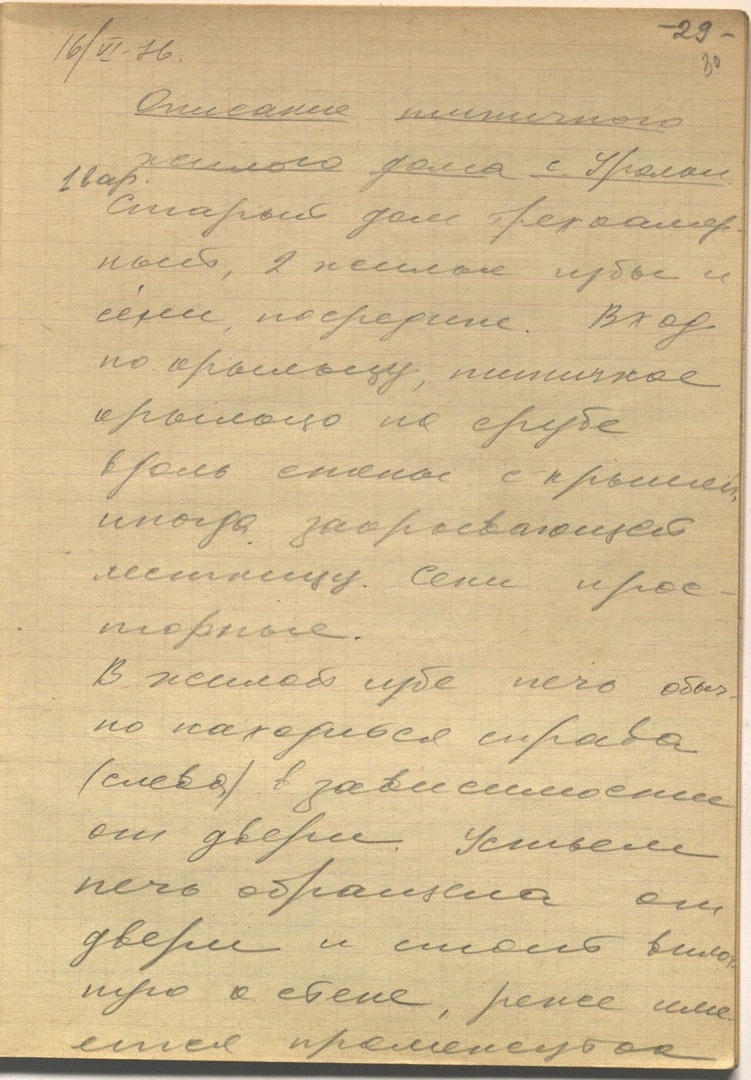 -29-
30
16/VI-76.
Описание типичного
жилого дома с. Уролки.
1 вар.
Старый дом трехкамер-
ный, 2 жилые избы и
сени, посредине. Вход
по крыльцу, типичное
крыльцо на срубе
вдоль стены с крышей,
иногда закрывающей
лестницу. Сени прос-
торные.
В жилой избе печь обыч-
но находится справа
(слева) в зависимости
от двери. Устьем
печь обращена от
двери и стоит вплот-
ную к стене, реже име-
ется промежуток